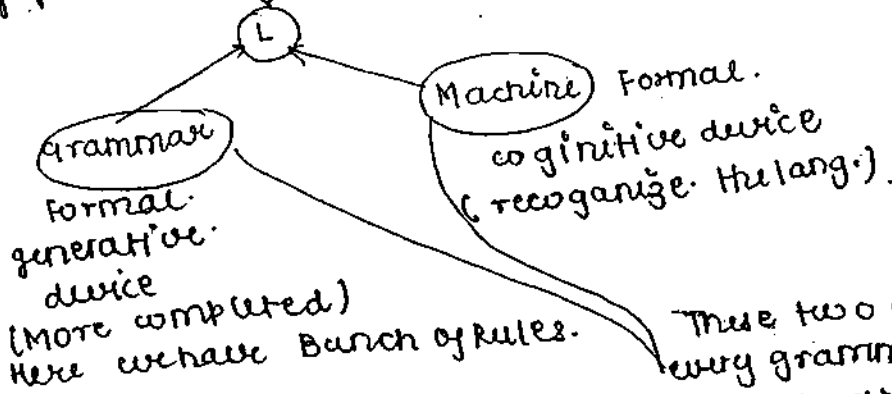 L
Machine Formal.
coginitive device
( recoganize. the lang.)
Grammar
Formal.
generative.
device
(More completed)
Here we have Bunch of Rules.
These two
every gramm